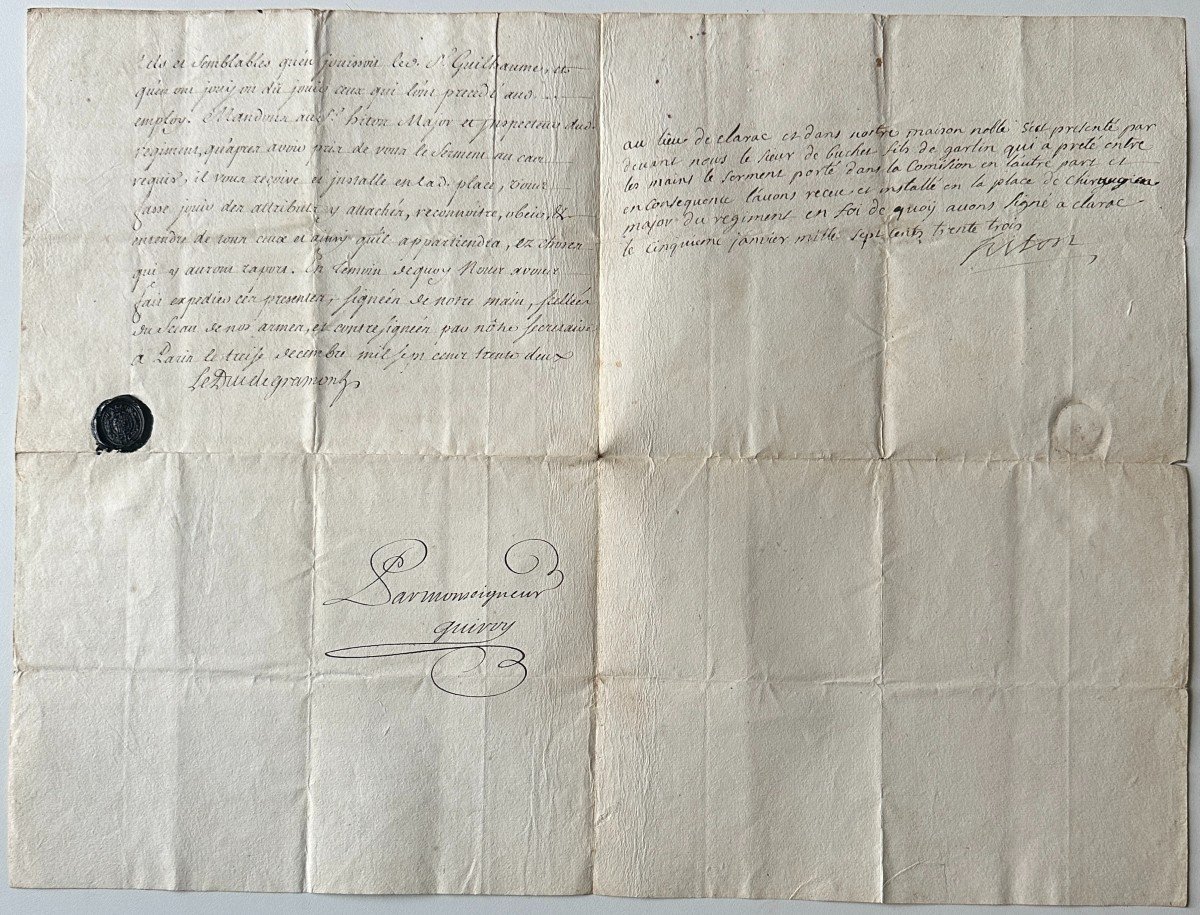 tels et semblables qu'en jouissoit led. Sr. Guilhaume, et
qu'en ont jouy ou dû jouir ceux qui l'ont precedé aud.
employ. Mandons au Sr. hiton Major et Inspecteur dud.
regiment, qu'apres avoir pris de vous le serment au cas
requis, il vous reçoive et installe en lad. place, vous
fasse jouir des attributs y attachés, reconnoitre, obeir, &
entendre de tous ceux et ainsy qu'il appartiendra, ez choses
qui y auront raport. En temoin dequoy Nous avons
fait expedier ces presentes, signées de notre main, scellées
du Sceau de nos armes, et contresignées par nôtre Secretaire
a Paris le treise decembre mil sept cens trente deux
Le Duc de gramont
Par monseigneur
quiroy
au lieu de clarac et dans nostre maison noble s'est presenté par
devant nous le sieur de Cuchet fils de garlin qui a preté entre
les mains le serment porté dans la Comission en lautre part et
en consequence lavons receu et installé en la place de chirurgien
major du regiment en foi de quoy avons signé a clarac
le cinquieme janvier mille sept cents trente trois
hiton